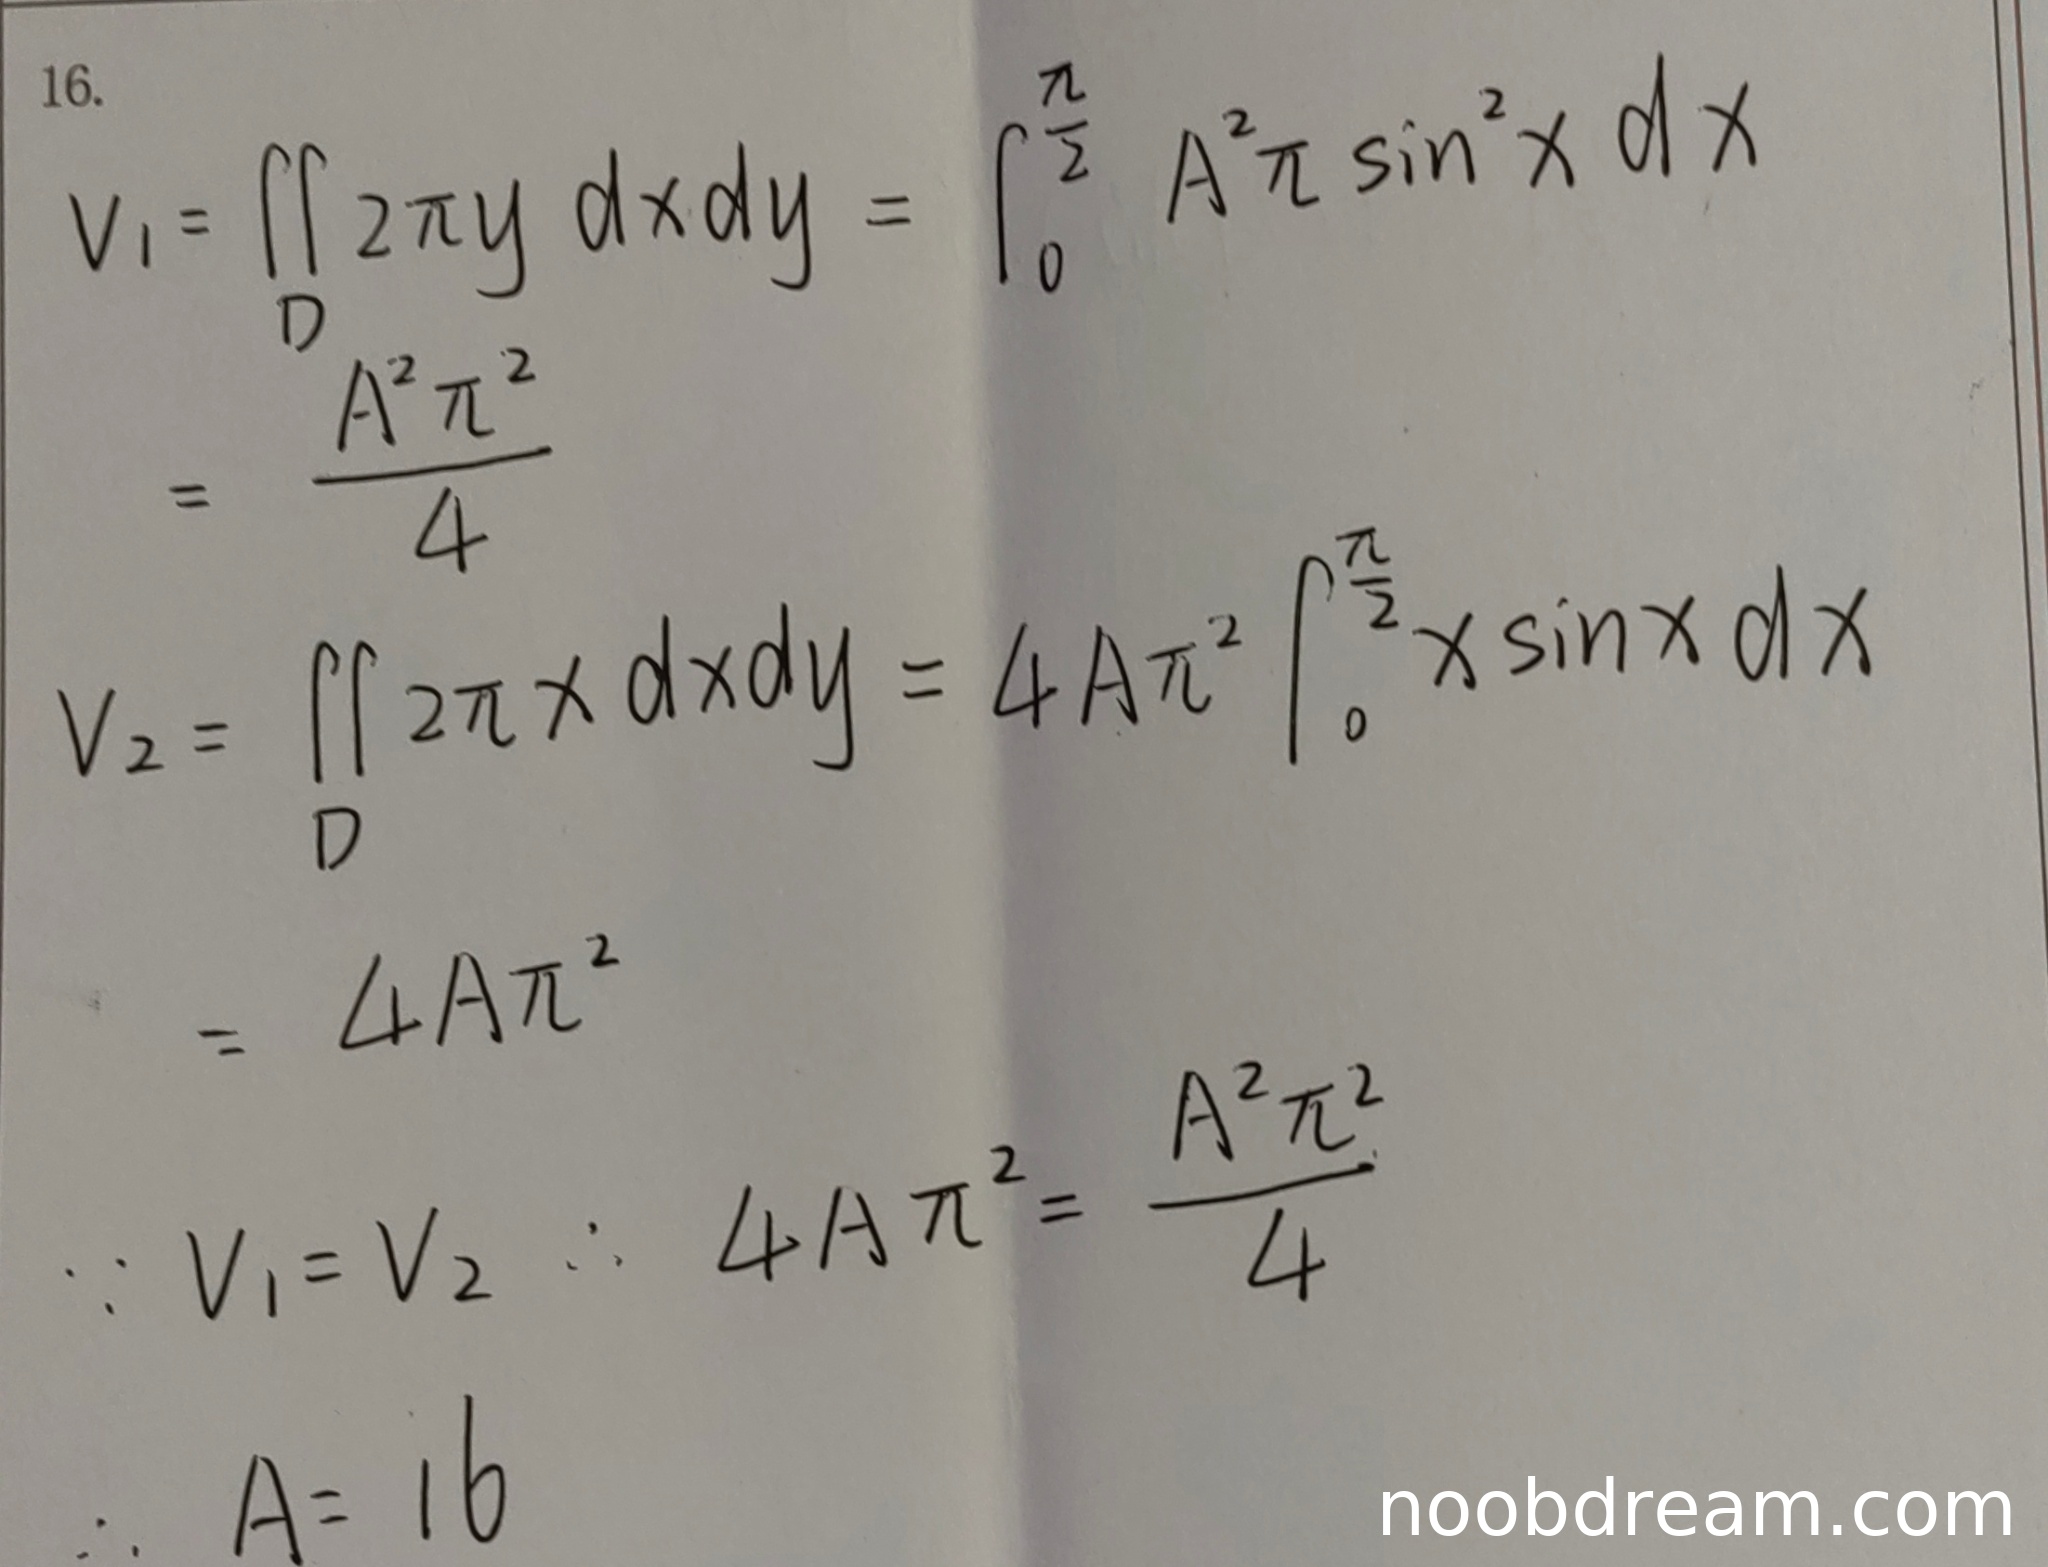 16.
V₁ = ∬_D 2πy dxdy = ∫₀^(π/2) A²π sin²x dx
= A²π²/4
V₂ = ∬_D 2πx dxdy = 4Aπ² ∫₀^(π/2) x sinx dx
= 4Aπ²
∵ V₁ = V₂ ∴ 4Aπ² = A²π²/4
∴ A = 16
noobdream.com